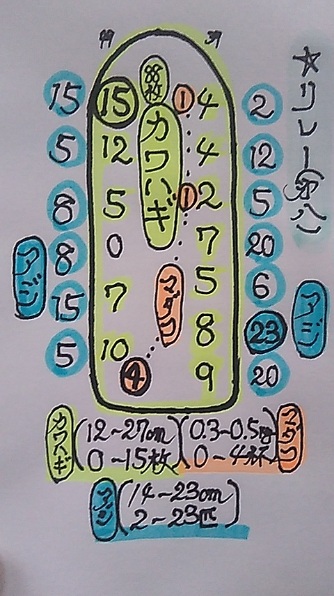 ☆リレー
88枚
カワハギ
15 15 1 4 2
5 12 4 12
8 5 1 2 5
8 0 7 20
15 7 5 6
5 10 8 23
4 9 20
アジ
マダコ
アジ
カワハギ (12~27cm 0~15枚)
(0.3~0.5 0~4杯) マダコ
アジ (14~23cm 2~23匹)